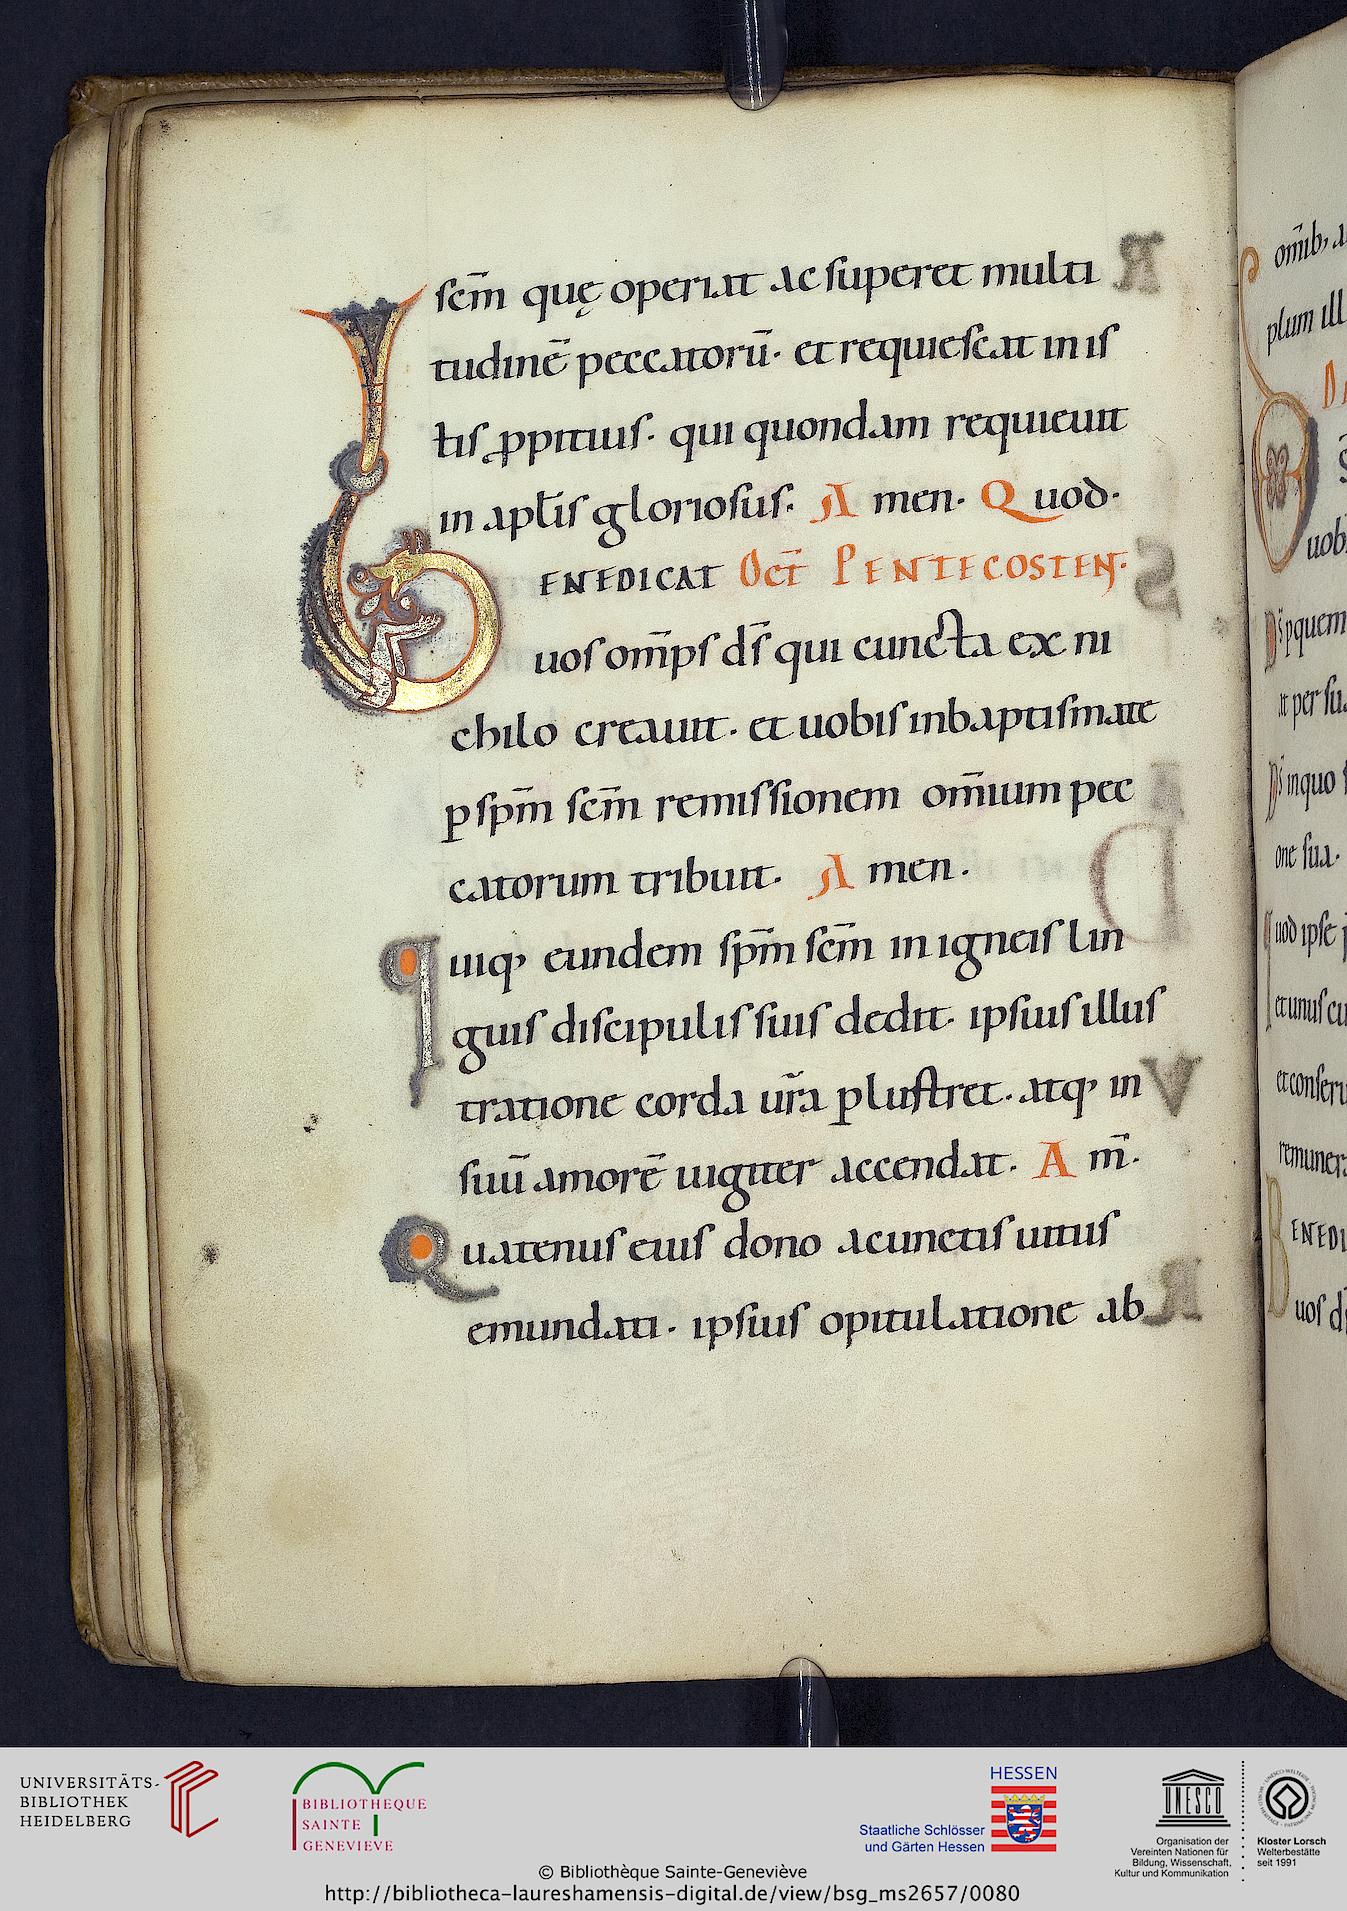 scm̄ quę operiat ac superet multi
tudinē peccatorū· et requiescat in is
tis ꝓpitius· qui quondam requieuit
in apl̄is gloriosus· Amen· Quod·
BENEDICAT Oct̄ PENTECOSTEN·
uos om̄ps ds̄ qui cuncta ex ni
chilo creauit· et uobis in baptismate
ꝑ spm̄ scm̄ remissionem om̄ium pec
catorum tribuit· Amen·
quiq; eundem spm̄ scm̄ in igneis lin
guis discipulis suis dedit· ipsius illus
tratione corda ur̄a ꝑlustret· atq; in
suū amorē iugiter accendat· Am̄·
Quatenus eius dono a cunctis uitiis
emundati· ipsius opitulatione ab
om̄ib; a
plum ill
uob
ꝑquem
ut per su
inquo
one sua·
quod ipse
et unus cu
et conseru
remuner
BENEDI
uos d
UNIVERSITÄTS-
BIBLIOTHEK
HEIDELBERG
BIBLIOTHEQUE
SAINTE
GENEVIEVE
HESSEN
Staatliche Schlösser
und Gärten Hessen
UNESCO
Organisation der
Vereinten Nationen für
Bildung, Wissenschaft,
Kultur und Kommunikation
Kloster Lorsch
Welterbestätte
seit 1991
© Bibliothèque Sainte-Geneviève
http://bibliotheca-laureshamensis-digital.de/view/bsg_ms2657/0080